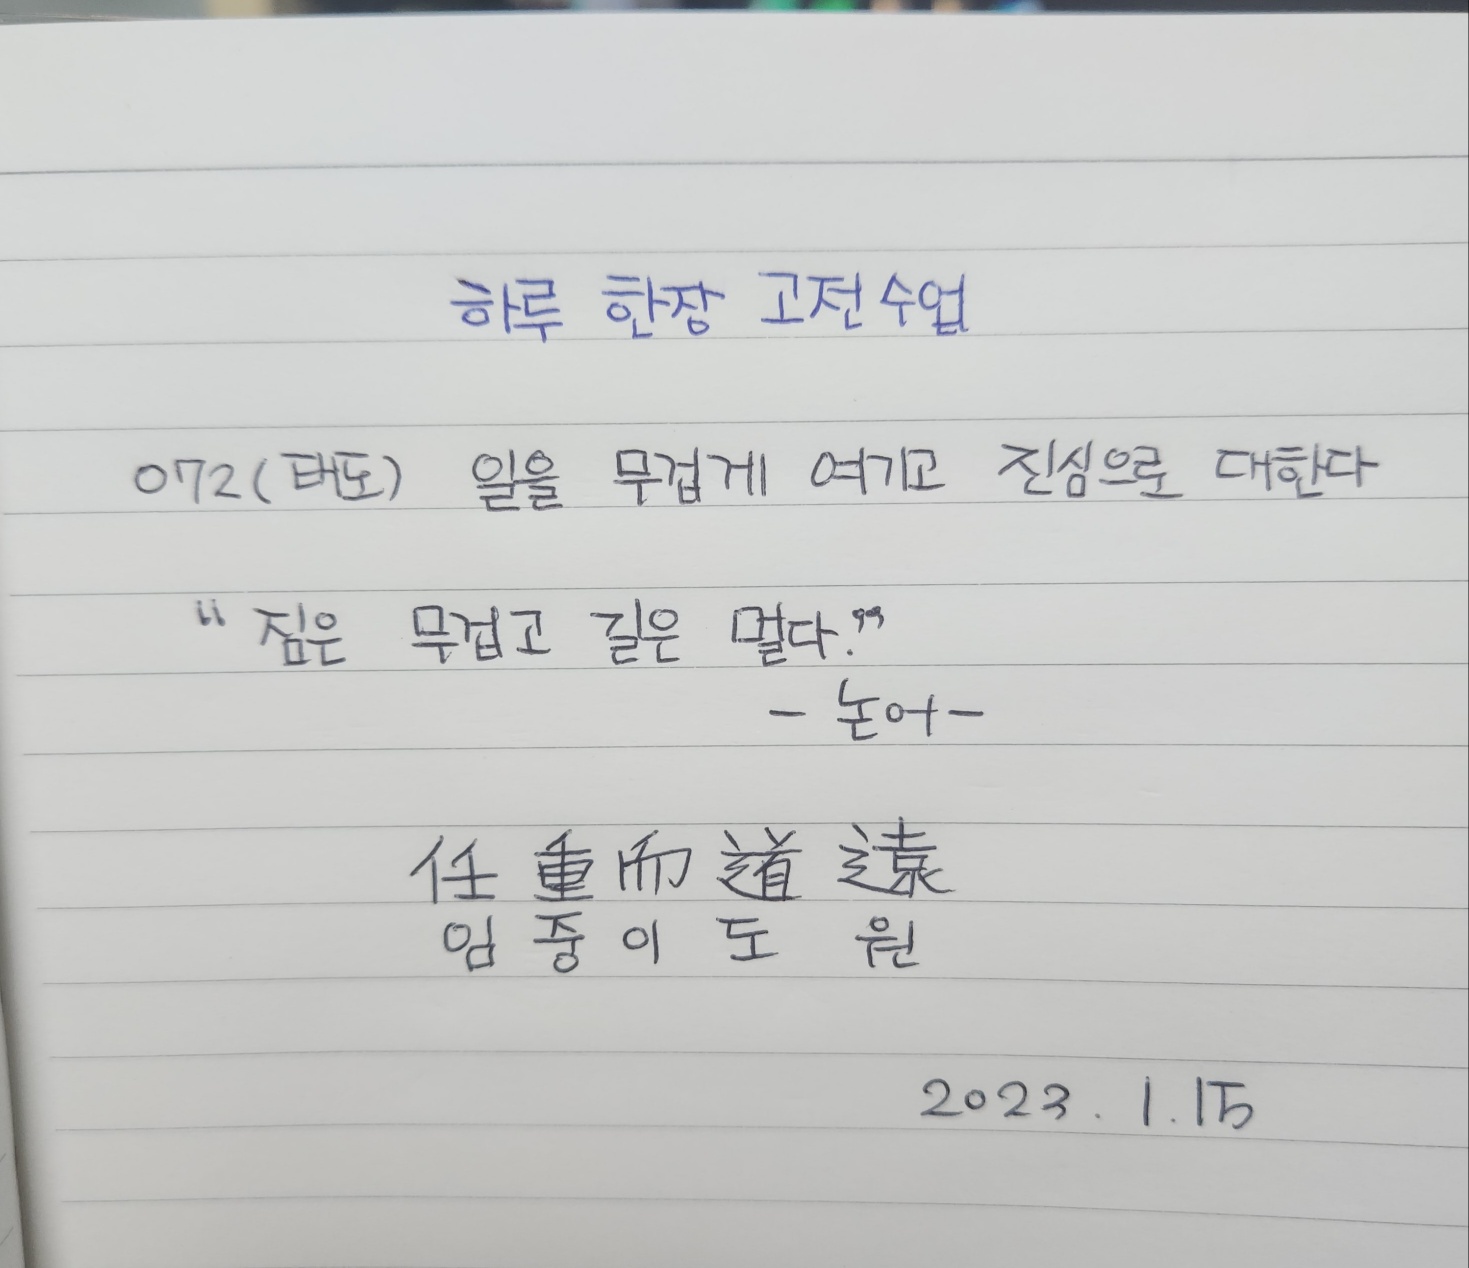 하루 한장 고전수업
072(태도) 일을 무겁게 여기고 진심으로 대한다
“짐은 무겁고 길은 멀다.”
- 논어 -
任重而道遠
임중이도원
2023. 1. 15